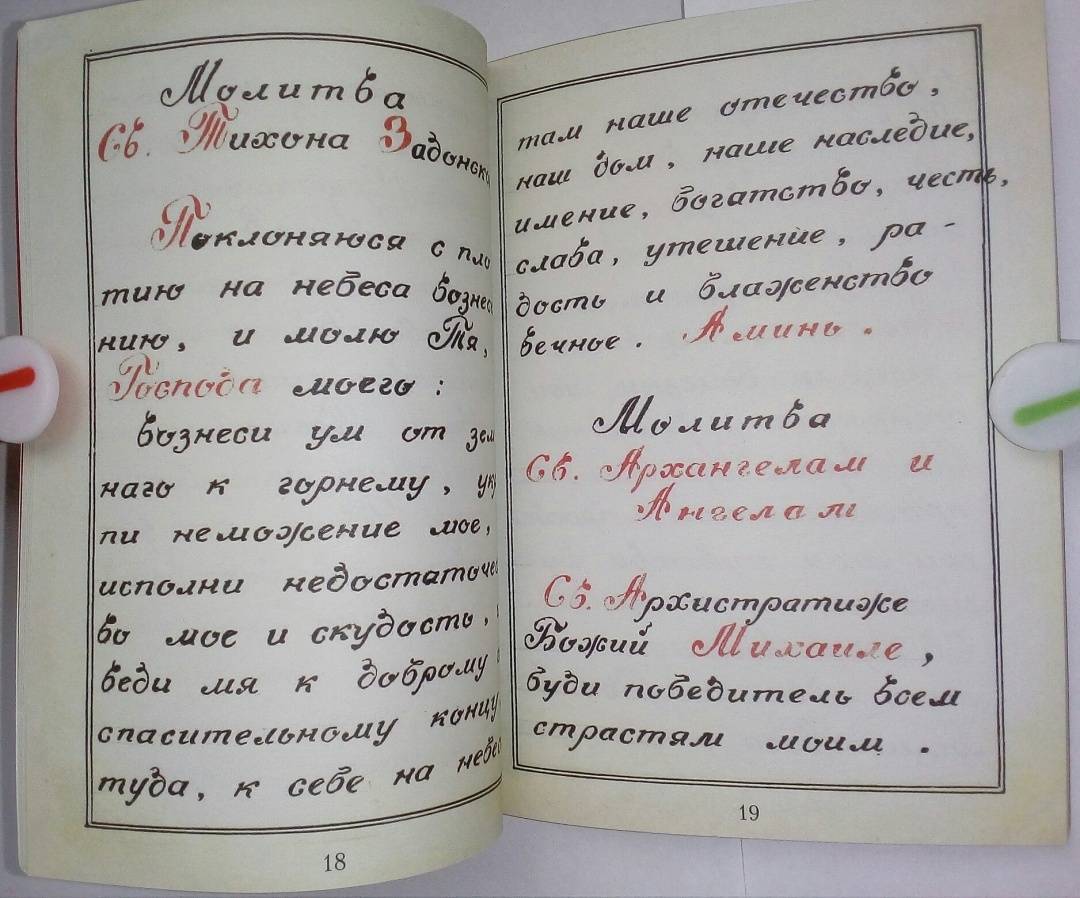 Молитва
Св. Тихона Задонск
Поклоняюся с пло
тию на небеса вознес
нию, и молю Тя,
Господа моего:
вознеси ум от зем
наго к горнему, ук
пи неможение мое,
исполни недостаточес
во мое и скудость,
веди мя к доброму
спасительному концу
туда, к себе на небес
18
там наше отечество,
наш дом, наше наследие,
имение, богатство, честь,
слава, утешение, ра-
дость и блаженство
вечное. Аминь.
Молитва
Св. Архангелам и
Ангелам
Св. Архистратиже
Божий Михаиле,
буди победитель всем
страстям моим.
19